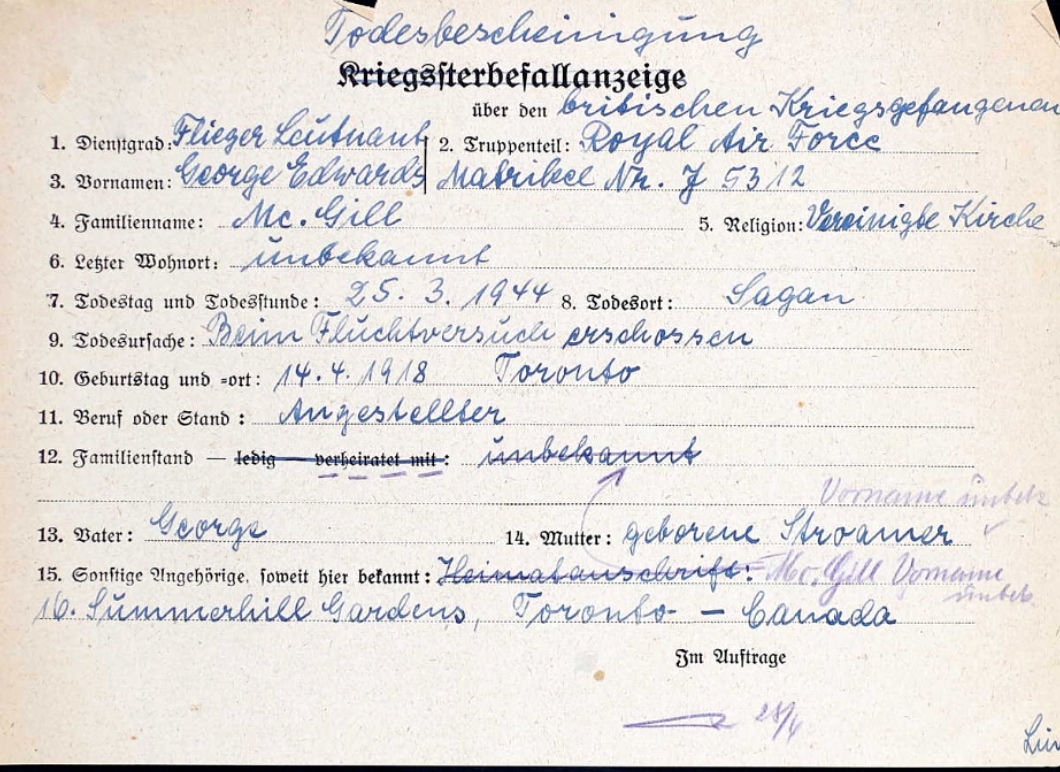 Todesbescheinigung
Kriegssterbefallanzeige
über den britischen Kriegsgefangenen
1. Dienstgrad: Flieger Leutnant 2. Truppenteil: Royal Air Force
3. Vornamen: George Edwards Matrikel Nr. J 5312
4. Familienname: Mc. Gill 5. Religion: Vereinigte Kirche
6. Letzter Wohnort: unbekannt
7. Todestag und Todesstunde: 25. 3. 1944 8. Todesort: Sagan
9. Todesursache: Beim Fluchtversuch erschossen
10. Geburtstag und =ort: 14. 4. 1918 Toronto
11. Beruf oder Stand: Angestellter
12. Familienstand — ledig — verheiratet mit: unbekannt
Vorname unbek
13. Vater: George 14. Mutter: geborene Stroamer
15. Sonstige Angehörige, soweit hier bekannt: Heimatanschrift: Mc. Gill Vorname
unbek.
16. Summerhill Gardens, Toronto - Canada
Im Auftrage
28/4